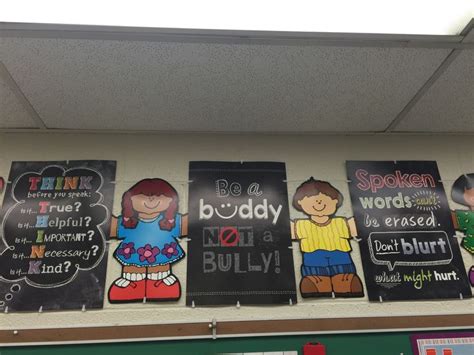 THINK
before you speak:
T Is it... True?
H Is it... Helpful?
I Is it... IMPORTANT?
N Is it... Necessary?
K Is it... Kind?
Be a
buddy
NOT a
BULLY!
Spoken
words can't
be erased.
Don't blurt
what might hurt.